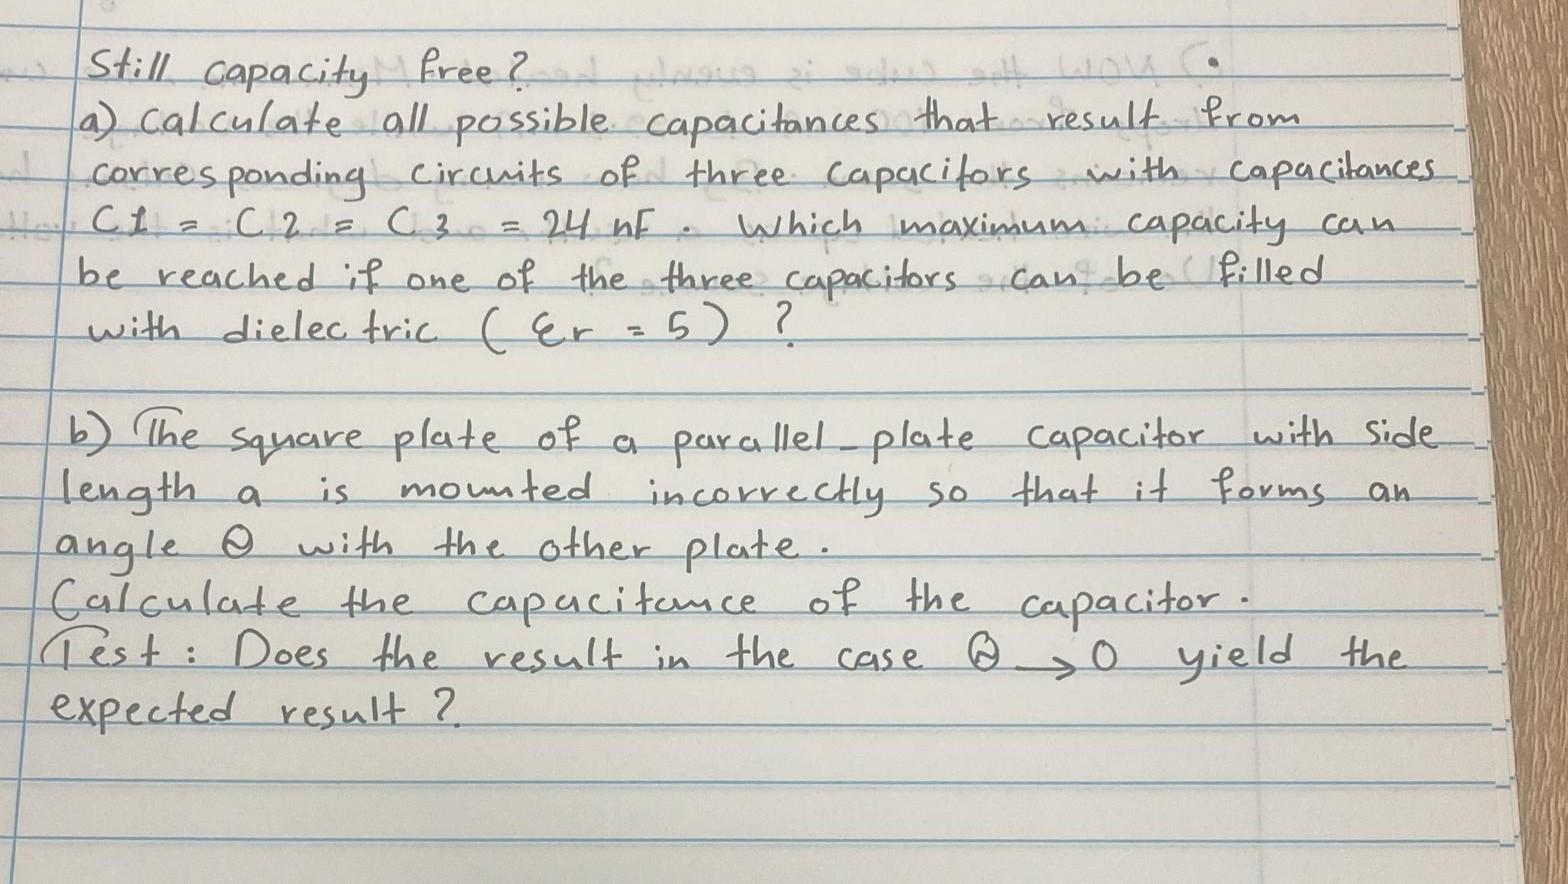 Still capacity free?
a) Calculate all possible capacitances that result from
corresponding circuits of three capacitors with capacitances
C1 = C2 = C3 = 24 nF. Which maximum capacity can
be reached if one of the three capacitors can be filled
with dielectric (εr = 5) ?
b) The square plate of a parallel-plate capacitor with side
length a is mounted incorrectly so that it forms an
angle Θ with the other plate.
Calculate the capacitance of the capacitor.
Test: Does the result in the case Θ → 0 yield the
expected result ?